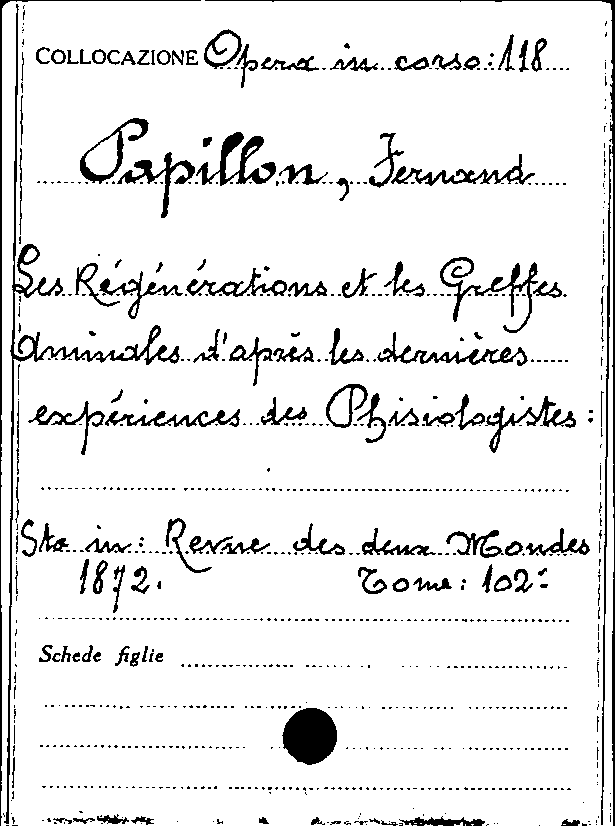 COLLOCAZIONE Opera in corso: 118
Papillon, Fernand
Les Régénérations et les Greffes
Aminales d'après les dernières
expériences des Phisiologistes:
Sta in: Revue des deux Mondes
1872. Tome: 102:
Schede figlie